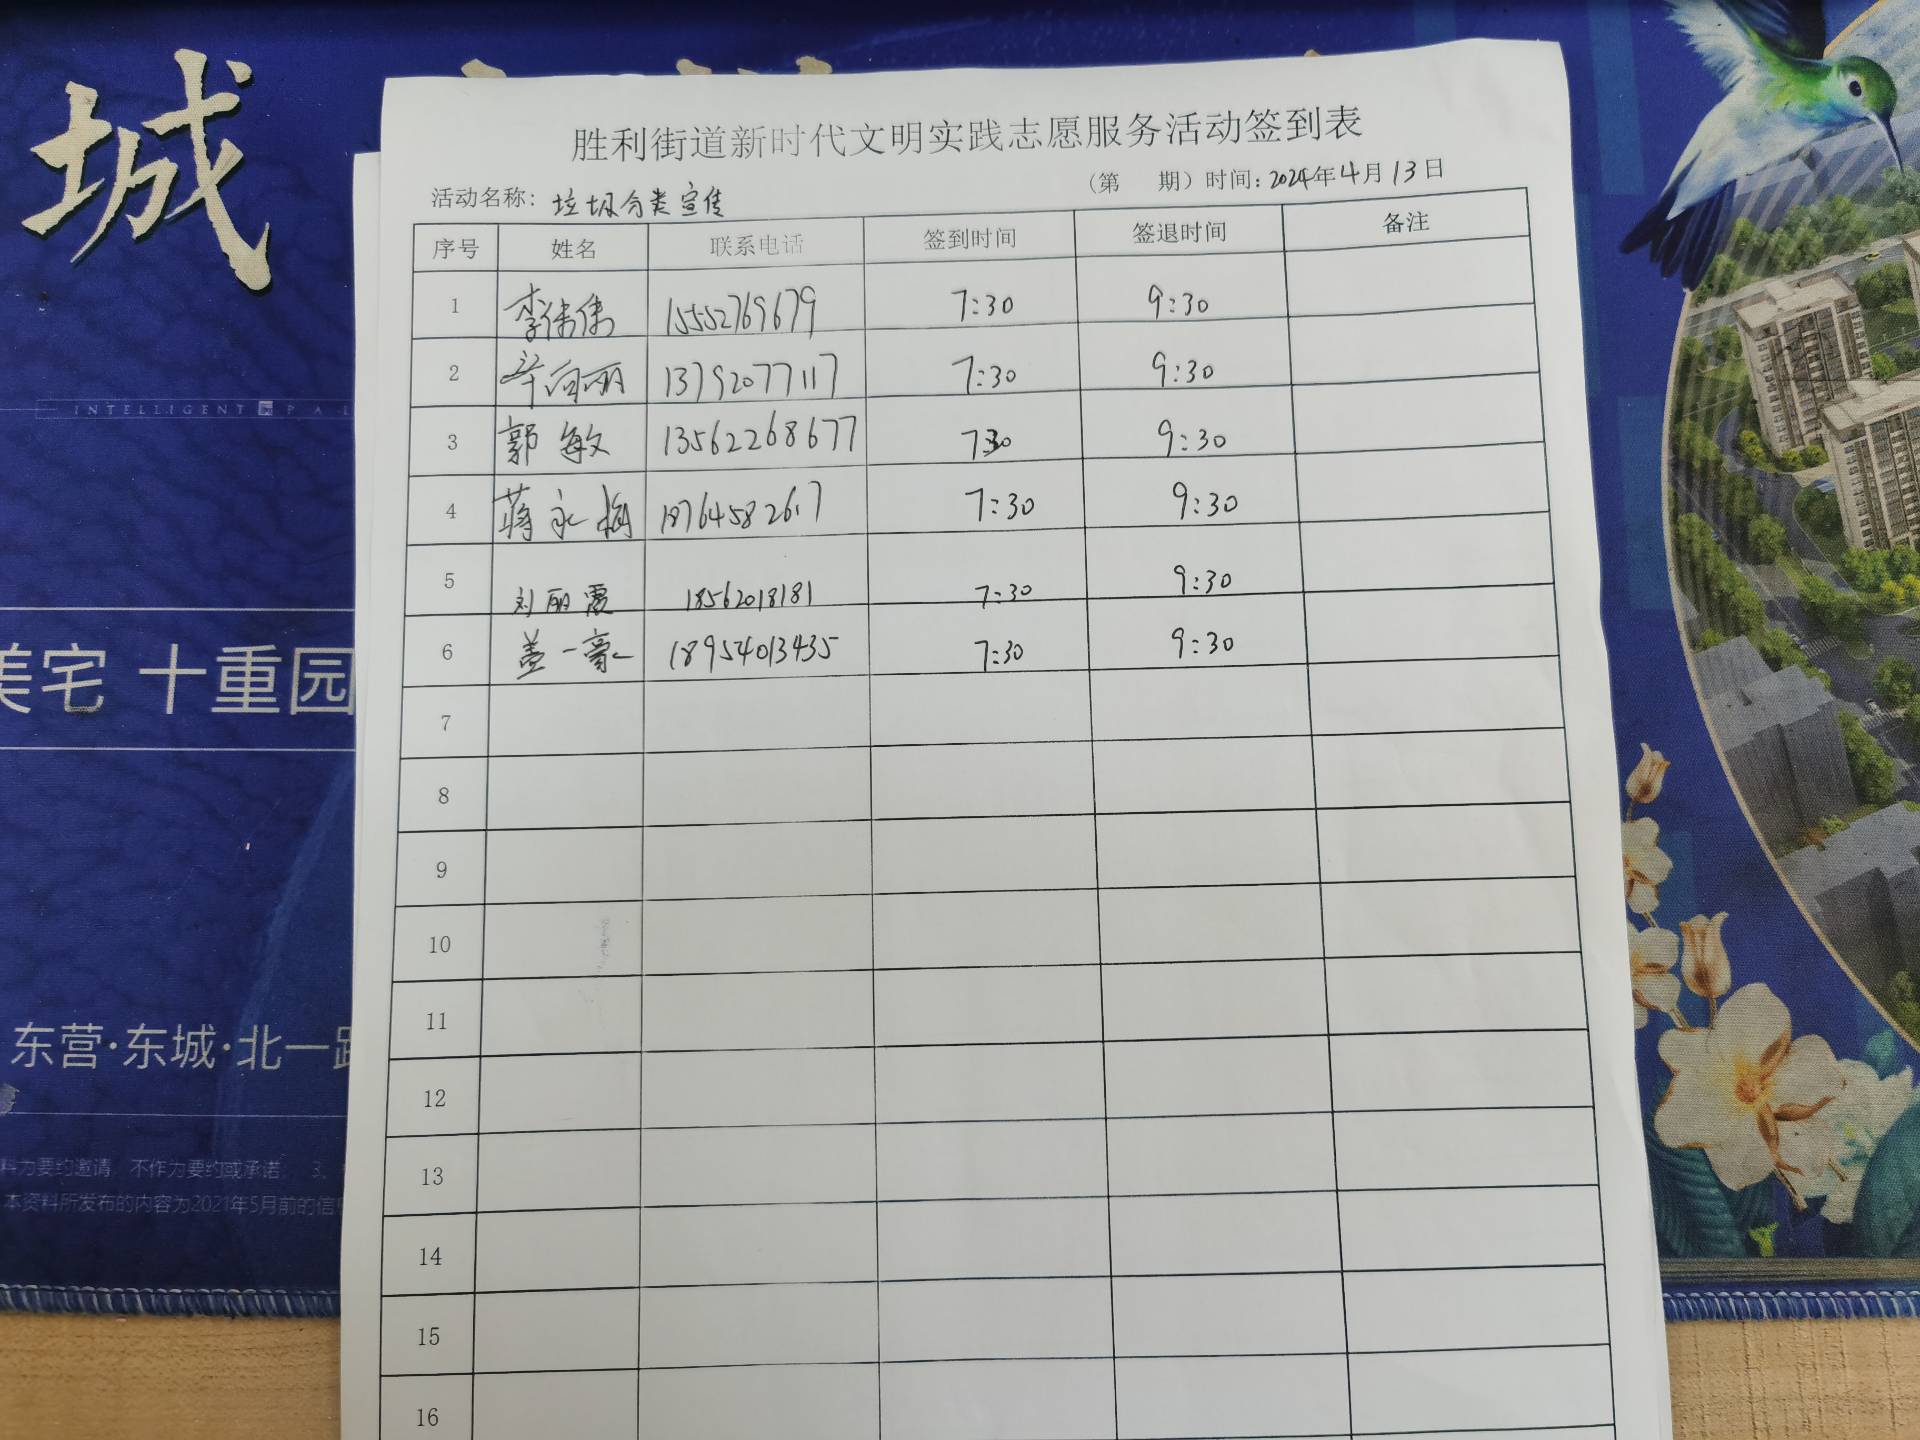 城
INTELLIGENT PAL
美宅 十重园
东营·东城·北一路
料为要约邀请，不作为要约或承诺； 3、
本资料所发布的内容为2021年5月前的信
胜利街道新时代文明实践志愿服务活动签到表
活动名称：垃圾分类宣传 （第 期）时间：2024年4月13日
序号 姓名 联系电话 签到时间 签退时间 备注
1 李伟伟 15552769679 7:30 9:30
2 辛向丽 13792077117 7:30 9:30
3 郭敏 13562268677 7:30 9:30
4 蒋永梅 18764582617 7:30 9:30
5 刘丽霞 18562018181 7:30 9:30
6 盖一豪 18954013435 7:30 9:30
7
8
9
10
11
12
13
14
15
16